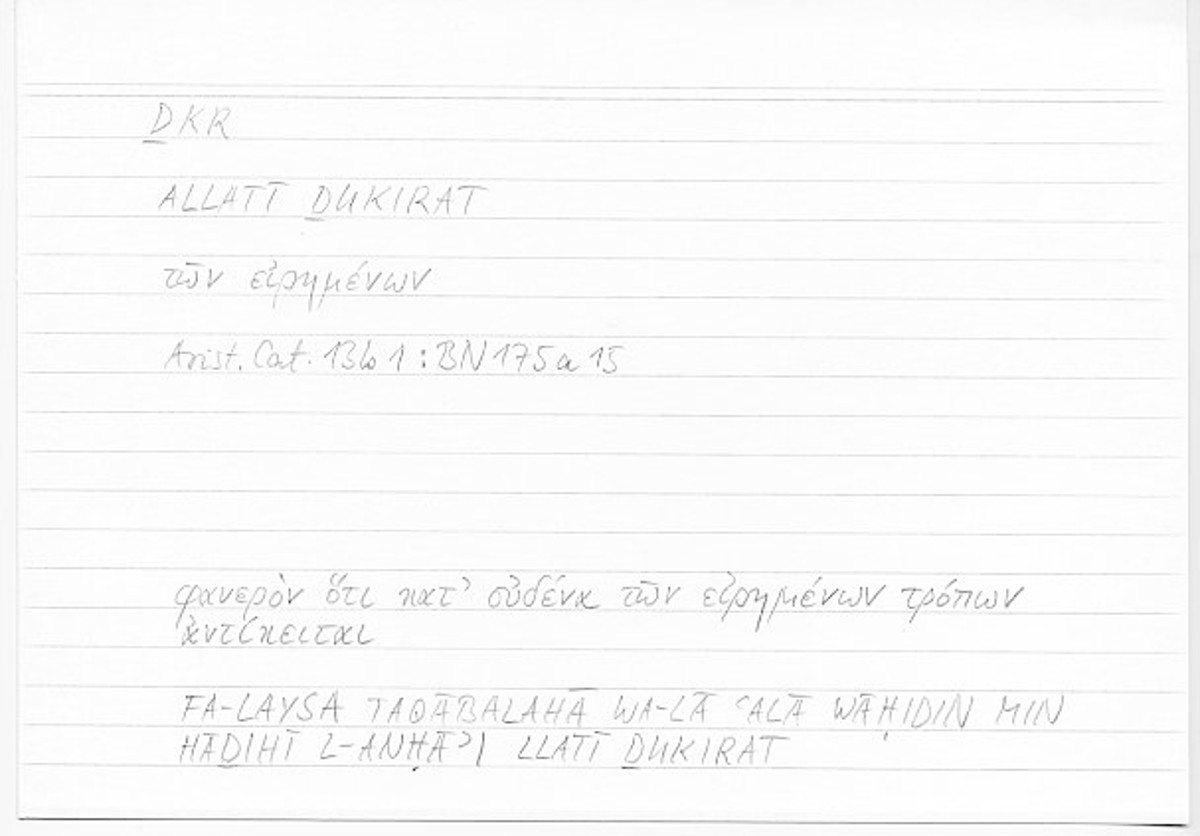 ḎKR
ALLATĪ ḎUKIRAT
τῶν εἰρημένων
Arist. Cat. 13b1 : BN 175a15
φανερὸν ὅτι κατ᾽ οὐδένα τῶν εἰρημένων τρόπων
ἀντίκειται
FA-LAYSA TAQĀBALAHĀ WA-LĀ ʿALĀ WĀḤIDIN MIN
HĀḎIHĪ L-ANḤĀʾI LLATĪ ḎUKIRAT